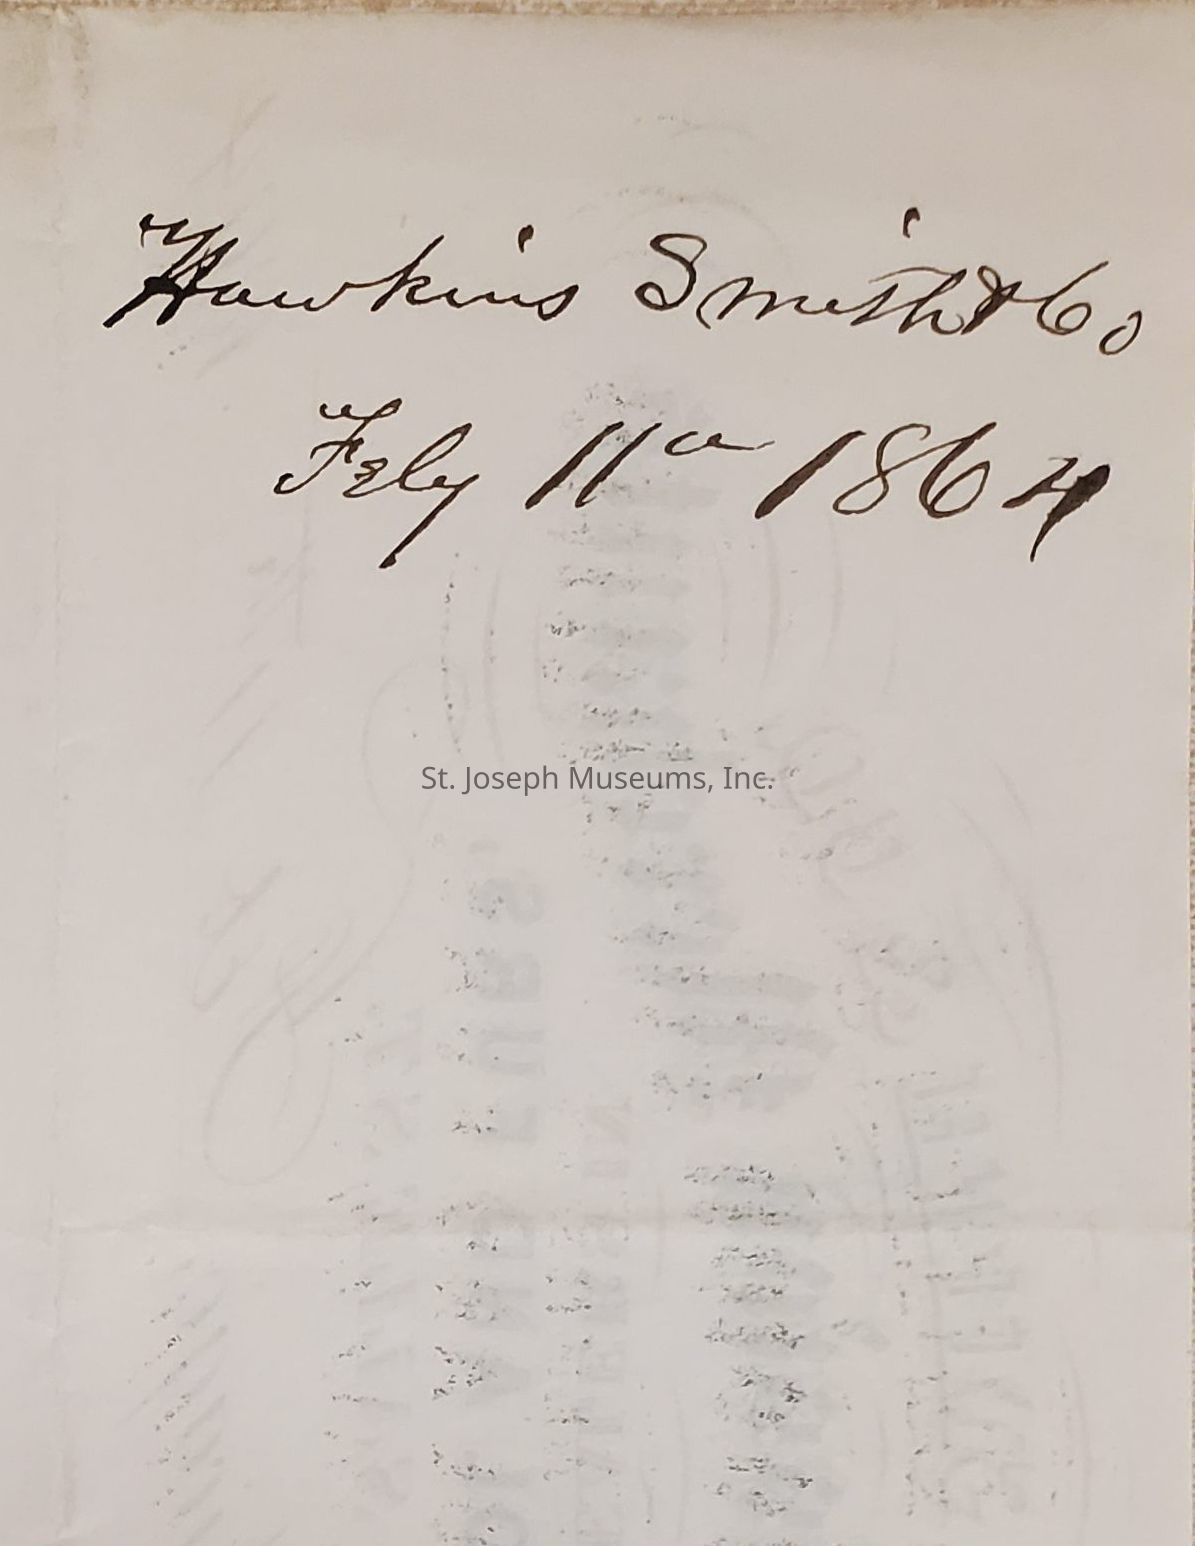 Hawkins Smith & Co
Feby 11th 1864
St. Joseph Museums, Inc.